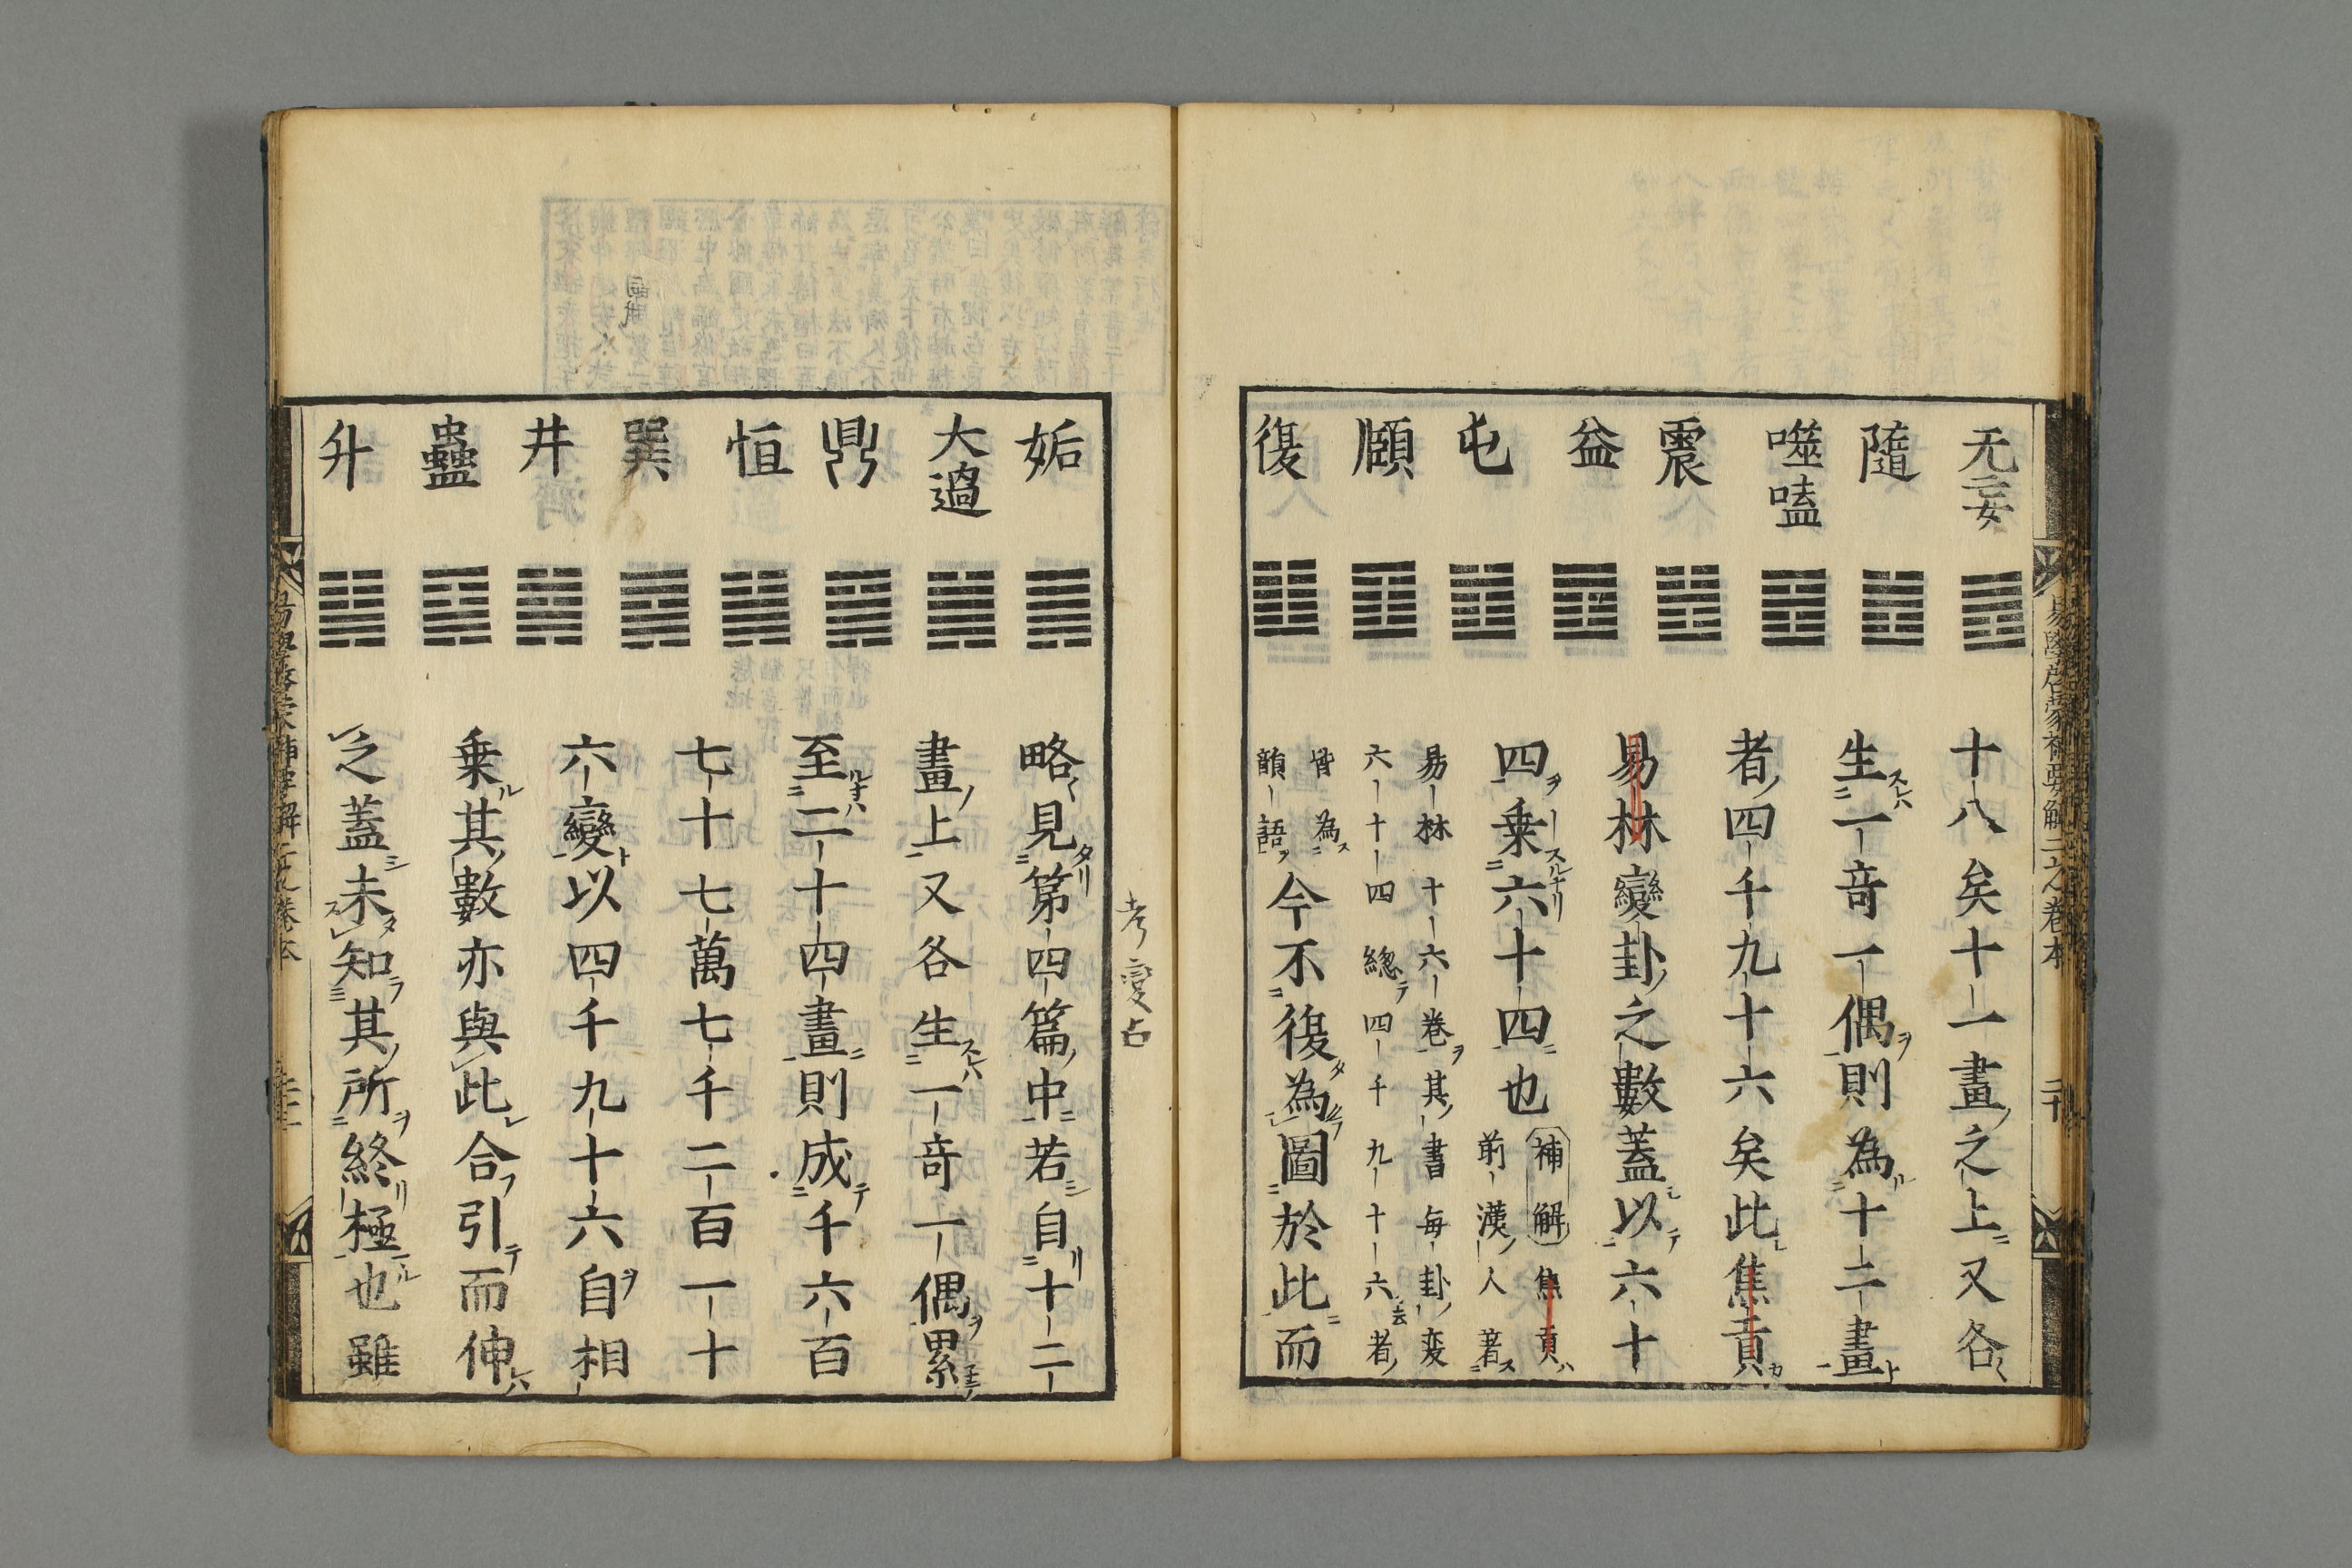 无妄
隨
噬嗑
震
益
屯
頤
復
十八矣十一畫之上又各
生一奇一偶則為十二畫
者四千九十六矣此焦貢
易林變卦之數蓋以六十
四乗六十四也
補解 焦貢
前漢人著
易林十六卷其書每卦変
六十四総四千九十六云者
皆為
韻語
今不復為圖於此而
易學啓蒙補要解二之卷本
姤
大過
鼎
恒
巽
井
蠱
升
略見第四篇中若自十二
畫上又各生一奇一偶累
至二十四畫則成千六百
七十七萬七千二百一十
六變以四千九十六自相
乗其數亦與此合引而伸
之蓋未知其所終極也雖
考變占